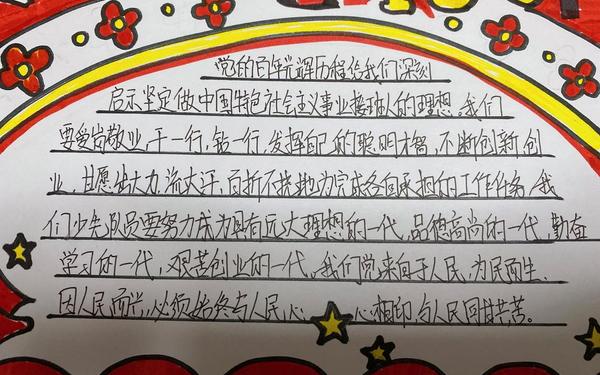 党的百年光辉历程给我们深刻
启示坚定做中国特色社会主义事业接班人的理想。我们
要爱岗敬业,干一行,钻一行,发挥自己的聪明才智,不断创新创
业,甘愿出大力,流大汗,百折不挠地为完成各自承担的工作任务,我
们少先队员要努力成为具有远大理想的一代,品德高尚的一代,勤奋
学习的一代,艰苦创业的一代。我们党来自于人民,为民而生,
因人民而兴,必须始终与人民心 心相印,与人民同甘共苦。